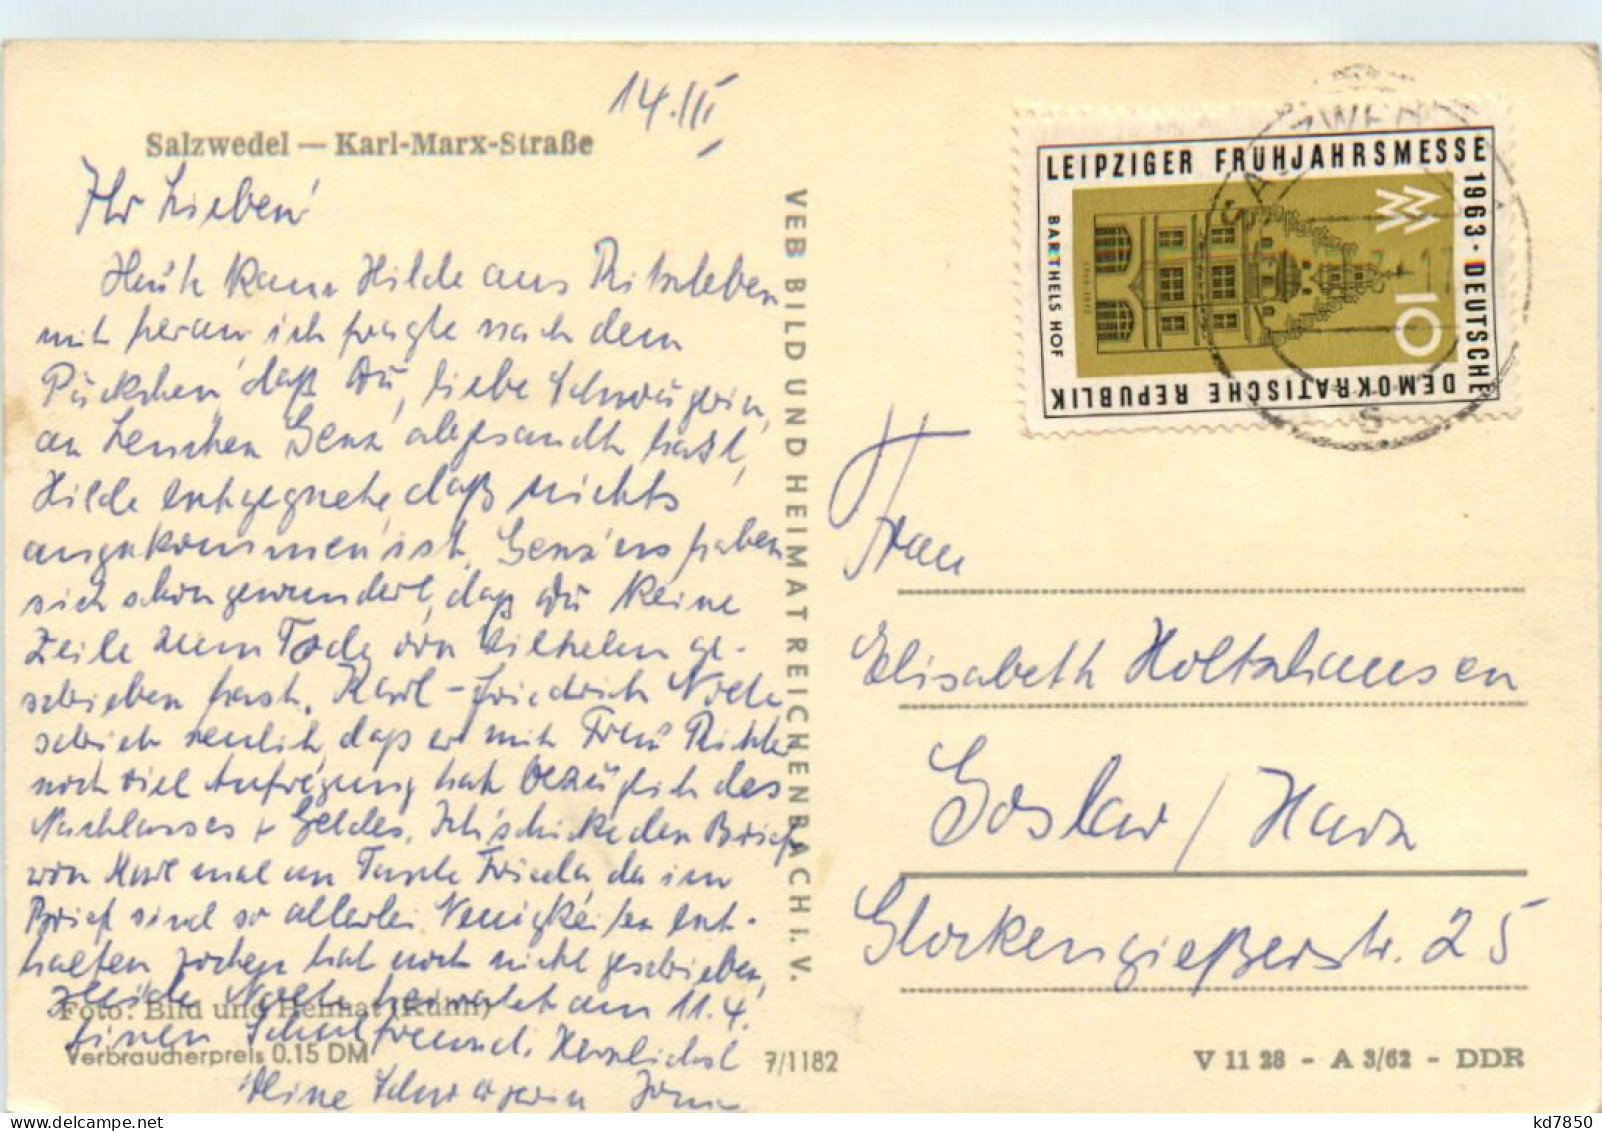 14.III
Salzwedel — Karl-Marx-Straße
Ihr Lieben!
Heute kam Hilde aus Ritzleben
mit heran, ich fragte nach dem
Päckchen, daß Du, liebe Schwägerin,
an Lenchen Genz abgesandt hast,
Hilde entgegnete, daß nichts
angekommen ist. Genz'ens haben
sich schon gewundert, daß Du keine
Zeile zum Tode von Wilhelm ge-
schrieben hast. Karl-Friedrich Nolte
schrieb neulich, daß er mit Frau
noch viel Aufregung hat bezüglich des
Nachlasses + Geldes. Ich schicke den Brief
von Karl mal an Tante Frieda, da im
Brief sind so allerlei Neuigkeiten ent-
halten, hat noch nicht geschrieben,
Nolte heiratet am 11.4.
Foto: Bild und Heimat (Kühn)
einen Schulfreund. Herzlichst
Verbraucherpreis 0.15 DM
Deine Schwägerin
7/1182
VEB BILD UND HEIMAT REICHENBACH I. V.
LEIPZIGER FRÜHJAHRSMESSE 1963 · DEUTSCHE
DEMOKRATISCHE REPUBLIK
BARTHELS HOF
10
SALZWEDEL
S
Frau
Elisabeth Holtzhausen
Goslar / Harz
Glockengießerstr. 25
V 11 28 - A 3/62 - DDR
kd7850